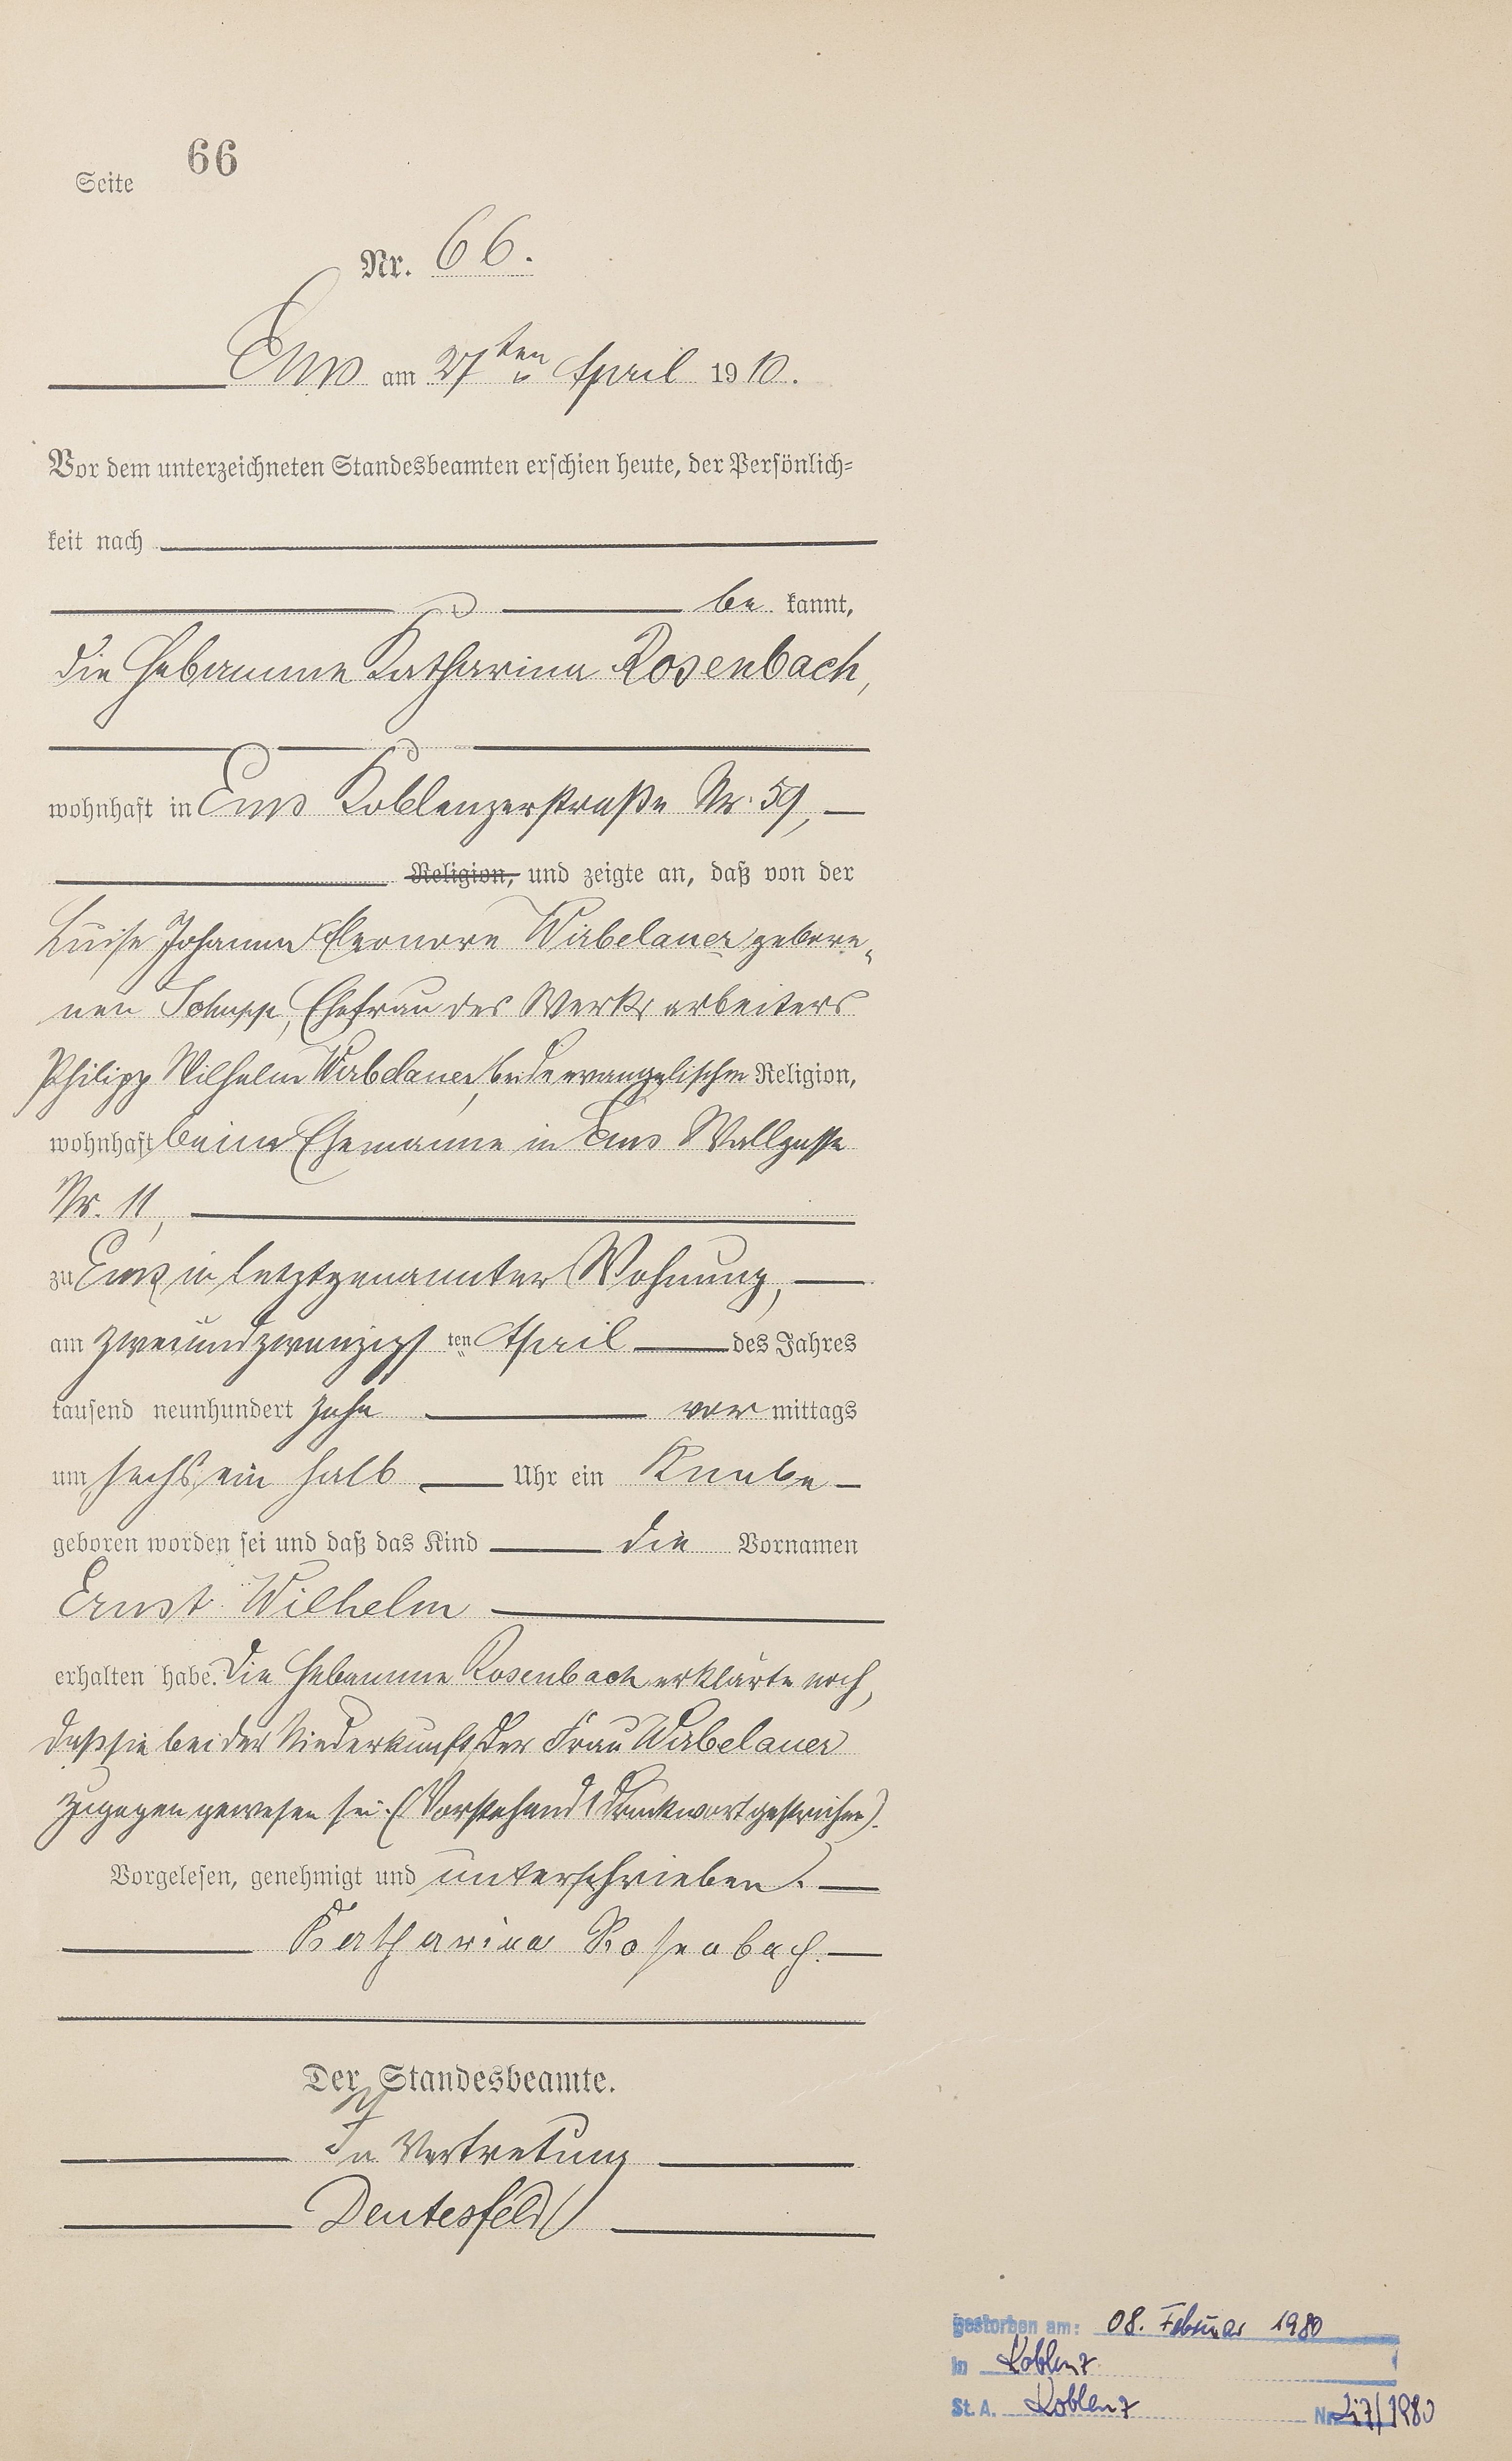 Seite 66
Nr. 66.
Ems am 27ten April 1910.
Vor dem unterzeichneten Standesbeamten erschien heute, der Persönlich-
keit nach
be kannt,
die Hebamme Katharina Rosenbach,
wohnhaft in Ems Koblenzerstraße Nr. 59,
Religion, und zeigte an, daß von der
Luise Johanna Eleonore Wirbelauer gebore-
nen Schupp, Ehefrau des Werksarbeiters
Philipp Wilhelm Wirbelauer, beide evangelischer Religion,
wohnhaft beim Ehemanne in Ems Wallgasse
Nr. 11,
zu Ems in letztgenannter Wohnung,
am zweiundzwanzigsten April des Jahres
tausend neunhundert zehn vor mittags
um sechs ein halb Uhr ein Knabe
geboren worden sei und daß das Kind die Vornamen
Ernst Wilhelm
erhalten habe. Die Hebamme Rosenbach erklärte noch,
daß sie bei der Niederkunft der Frau Wirbelauer
zugegen gewesen sei. (Vorstehend 1 Druckwort gestrichen).
Vorgelesen, genehmigt und unterschrieben.
Katharina Rosenbach.
Der Standesbeamte.
In Vertretung
Deutesfeld
gestorben am: 08. Februar 1980
in Koblenz
St. A. Koblenz Nr. /1980